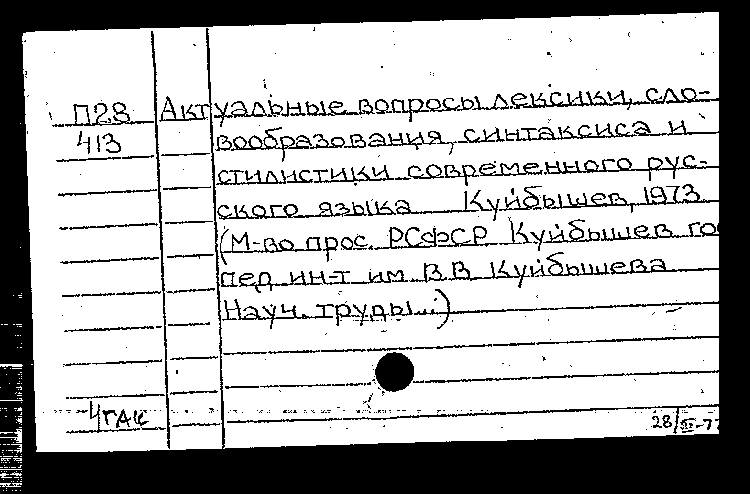 П28 Актуальные вопросы лексики, сло-
413 вообразования, синтаксиса и
стилистики современного рус-
ского языка Куйбышев, 1973
(М-во прос. РСФСР Куйбышев го
пед ин-т им В.В Куйбышева
Науч. труды...)
28/III-77